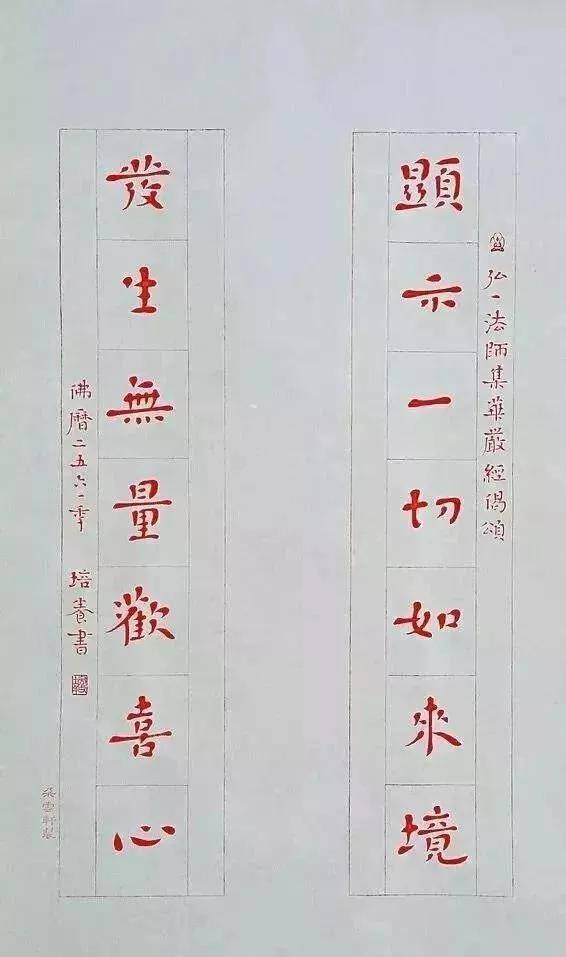 弘一法師集華嚴經偈頌
顯示一切如來境
發生無量歡喜心
佛曆二五六一季 培養書
朵雲軒製